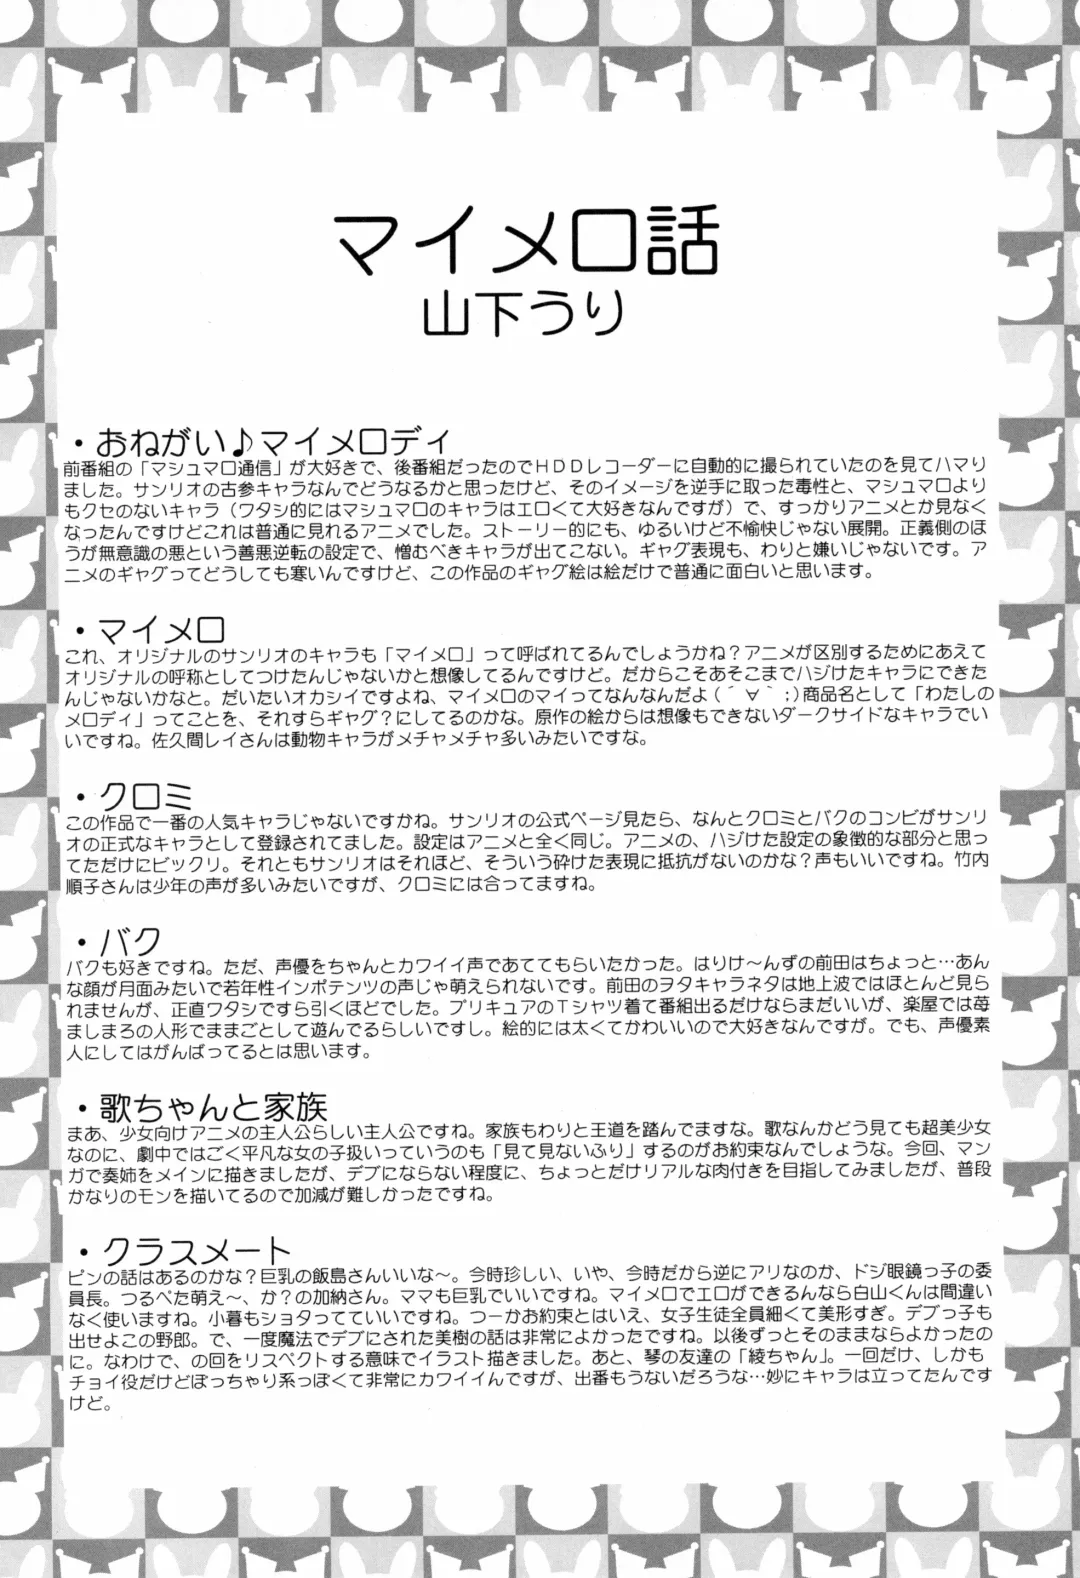 マイメロ話
山下うり
・おねがい♪マイメロディ
前番組の「マシュマロ通信」が大好きで、後番組だったのでＨＤＤレコーダーに自動的に撮られていたのを見てハマり
ました。サンリオの古参キャラなんでどうなるかと思ったけど、そのイメージを逆手に取った毒性と、マシュマロより
もクセのないキャラ（ワタシ的にはマシュマロのキャラはエロくて大好きなんですが）で、すっかりアニメとか見なく
なったんですけどこれは普通に見れるアニメでした。ストーリー的にも、ゆるいけど不愉快じゃない展開。正義側のほ
うが無意識の悪という善悪逆転の設定で、憎むべきキャラが出てこない。ギャグ表現も、わりと嫌いじゃないです。ア
ニメのギャグってどうしても寒いんですけど、この作品のギャグ絵は絵だけで普通に面白いと思います。
・マイメロ
これ、オリジナルのサンリオのキャラも「マイメロ」って呼ばれてるんでしょうかね？アニメが区別するためにあえて
オリジナルの呼称としてつけたんじゃないかと想像してるんですけど。だからこそあそこまでハジけたキャラにできた
んじゃないかなと。だいたいオカシイですよね、マイメロのマイってなんなんだよ（´∀｀；）商品名として「わたしの
メロディ」ってことを、それすらギャグ？にしてるのかな。原作の絵からは想像もできないダークサイドなキャラでい
いですね。佐久間レイさんは動物キャラがメチャメチャ多いみたいですな。
・クロミ
この作品で一番の人気キャラじゃないですかね。サンリオの公式ページ見たら、なんとクロミとバクのコンビがサンリ
オの正式なキャラとして登録されてました。設定はアニメと全く同じ。アニメの、ハジけた設定の象徴的な部分と思っ
てただけにビックリ。それともサンリオはそれほど、そういう砕けた表現に抵抗がないのかな？声もいいですね。竹内
順子さんは少年の声が多いみたいですが、クロミには合ってますね。
・バク
バクも好きですね。ただ、声優をちゃんとカワイイ声であててもらいたかった。はりけ〜んずの前田はちょっと…あん
な顔が月面みたいで若年性インポテンツの声じゃ萌えられないです。前田のヲタキャラネタは地上波ではほとんど見ら
れませんが、正直ワタシですら引くほどでした。プリキュアのＴシャツ着て番組出るだけならまだいいが、楽屋では苺
ましまろの人形でままごとして遊んでるらしいですし。絵的には太くてかわいいので大好きなんですが。でも、声優素
人にしてはがんばってるとは思います。
・歌ちゃんと家族
まあ、少女向けアニメの主人公らしい主人公ですね。家族もわりと王道を踏んでますな。歌なんかどう見ても超美少女
なのに、劇中ではごく平凡な女の子扱いっていうのも「見て見ないふり」するのがお約束なんでしょうな。今回、マン
ガで奏姉をメインに描きましたが、デブにならない程度に、ちょっとだけリアルな肉付きを目指してみましたが、普段
かなりのモンを描いてるので加減が難しかったですね。
・クラスメート
ピンの話はあるのかな？巨乳の飯島さんいいな〜。今時珍しい、いや、今時だから逆にアリなのか、ドジ眼鏡っ子の委
員長。つるぺた萌え〜、か？の加納さん。ママも巨乳でいいですね。マイメロでエロができるんなら白山くんは間違い
なく使いますね。小暮もショタってていいですね。つーかお約束とはいえ、女子生徒全員細くて美形すぎ。デブっ子も
出せよこの野郎。で、一度魔法でデブにされた美樹の話は非常によかったですね。以後ずっとそのままならよかったの
に。なわけで、の回をリスペクトする意味でイラスト描きました。あと、琴の友達の「綾ちゃん」。一回だけ、しかも
チョイ役だけどぽっちゃり系っぽくて非常にカワイイんですが、出番もうないだろうな…妙にキャラは立ってたんです
けど。